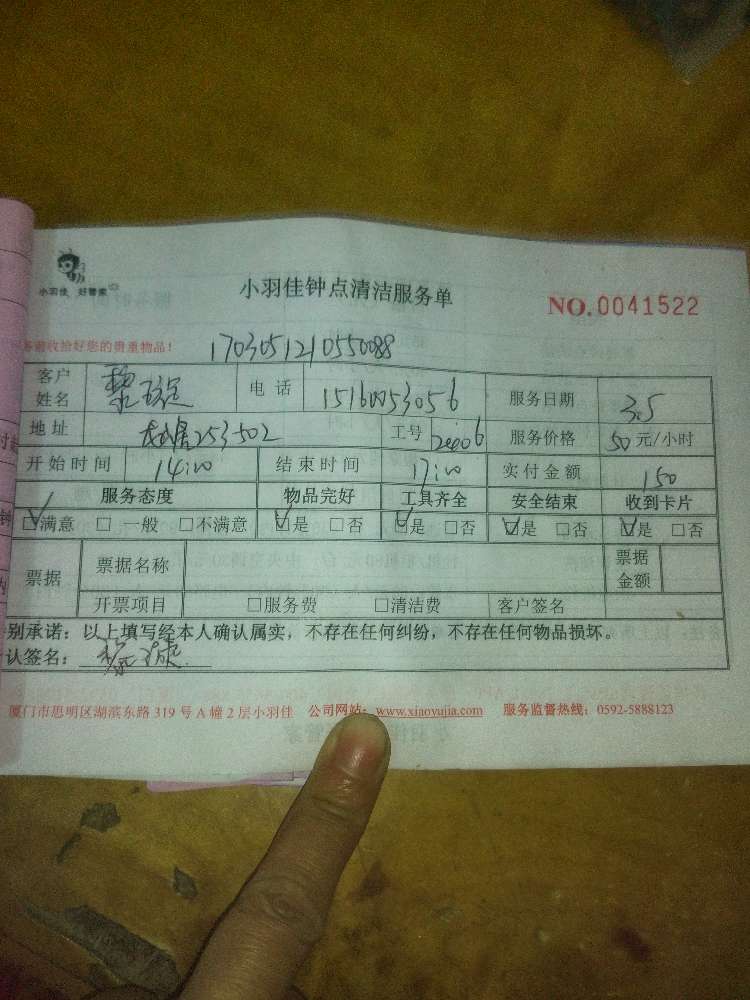 小羽佳 好管家
小羽佳钟点清洁服务单
NO.0041522
收拾好您的贵重物品！
1703051210550088
客户姓名 黎 电话 15160053056 服务日期 3.5
地址 253-502 工号 服务价格 50元/小时
开始时间 14:00 结束时间 17:00 实付金额 150
服务态度 物品完好 工具齐全 安全结束 收到卡片
☑满意 □一般 □不满意 ☑是 □否 ☑是 □否 ☑是 □否 ☑是 □否
票据 票据名称 票据金额
开票项目 □服务费 □清洁费 客户签名
别承诺：以上填写经本人确认属实，不存在任何纠纷，不存在任何物品损坏。
认签名： 黎
厦门市思明区湖滨东路 319 号 A 幢 2 层小羽佳 公司网站：www.xiaoyujia.com 服务监督热线：0592-5888123